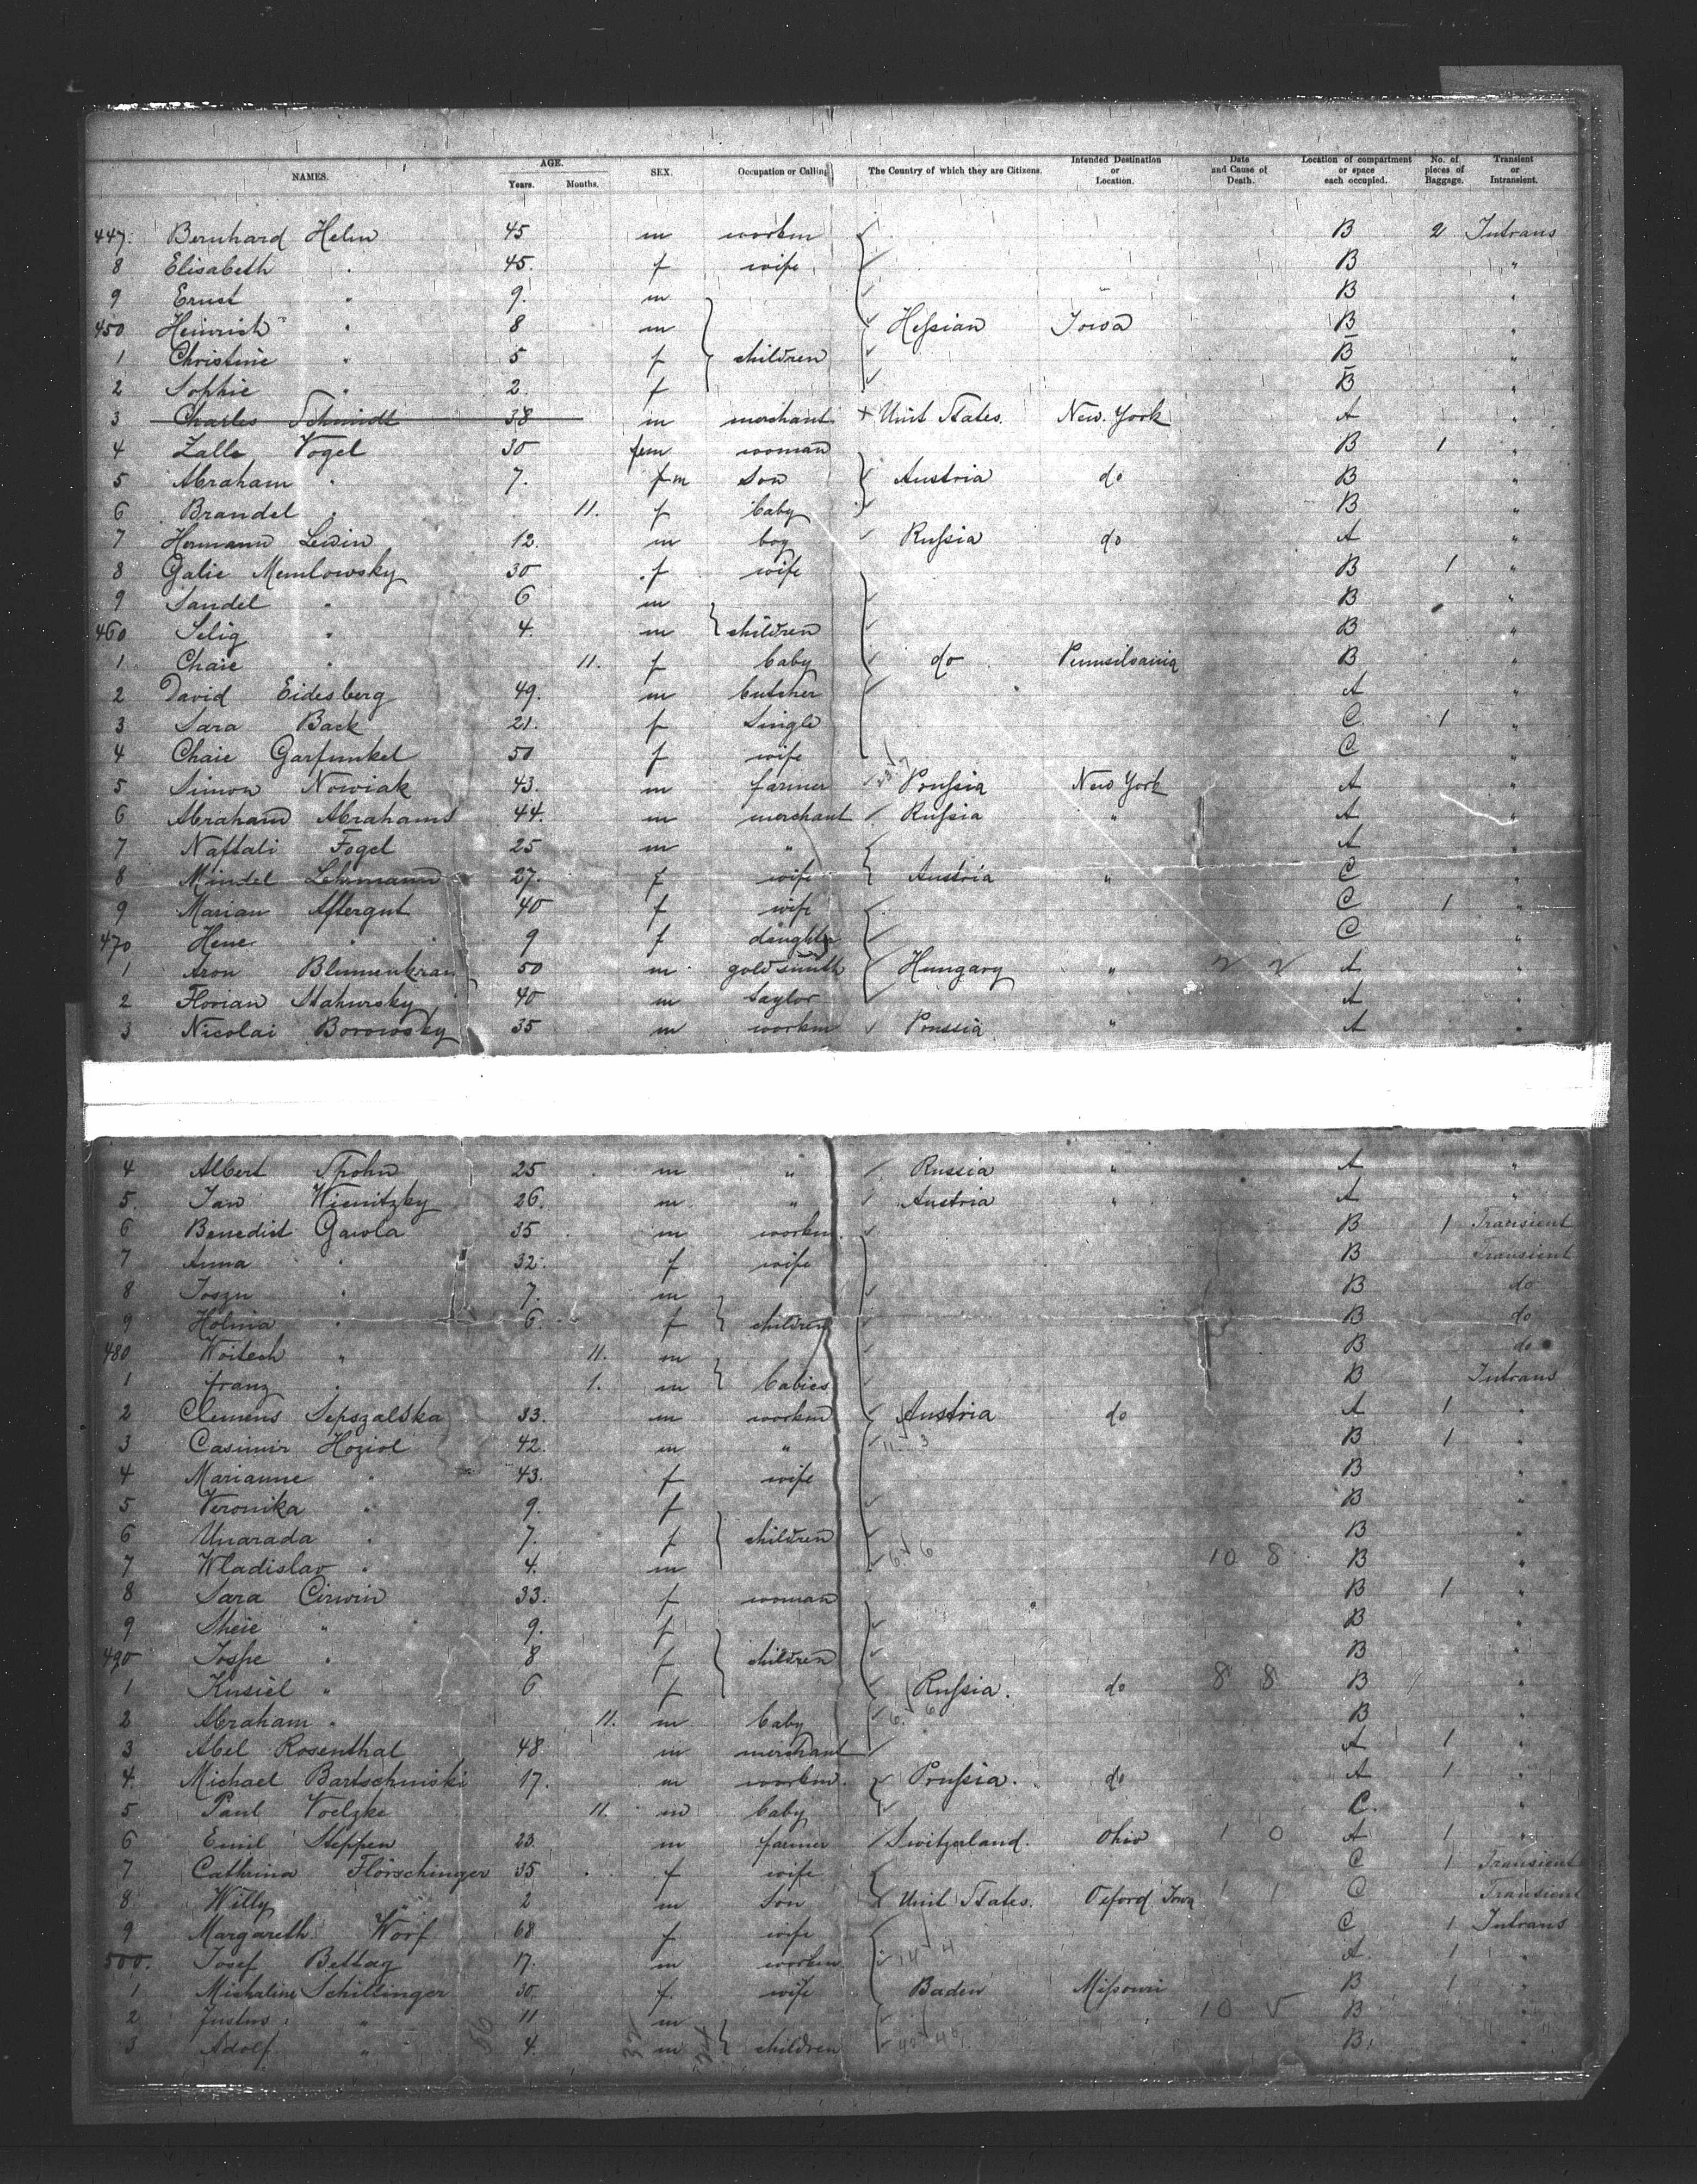 NAMES. AGE. Years. Months. SEX. Occupation or Calling The Country of which they are Citizens. Intended Destination or Location. Date and Cause of Death. Location of compartment or space each occupied. No. of pieces of Baggage. Transient or Intransient.
447. Bernhard Helm 45 m workm B 2 Intrans
8 Elisabeth " 45. f wife B "
9 Ernst " 9. m B "
450 Heinrich " 8 m Hessian Iowa B "
1 Christine " 5 f children B "
2 Sophie " 2 f B "
3 Charles Schmidt 38 m merchant + Unit States. New. York A "
4 Zalle Vogel 30 fem woman B 1 "
5 Abraham " 7. fm son Austria do B "
6 Brandel " 11. f baby B "
7 Hermann Lewin 12. m boy Russia do A "
8 Galie Memlowsky 30 f wife B 1 "
9 Sandel " 6 m B "
460 Selig " 4. m children B "
1 Chaie " 11. f baby do Pennsilvania B "
2 David Eidesberg 49. m butcher A "
3 Sara Back 21. f single C. 1 "
4 Chaie Garfunkel 50 f wife C "
5 Simon Nowiak 43. m farmer Prussia New York A "
6 Abraham Abrahams 44. m merchant Russia " A "
7 Naftali Fogel 25 m " A "
8 Mindel Lehmann 27. f wife Austria " C "
9 Marian Aftergut 40 f wife C 1 "
470 Hene " 9 f daughter C "
1 Aron Blumenkran 50 m goldsmith Hungary " A "
2 Florian Stahursky 40 m taylor A "
3 Nicolai Borowsky 35 m workm Prussia " A "
4 Albert Spohn 25 m " Russia " A "
5. Jan Wienitzky 26. m " Austria " A "
6 Benedict Gawla 35 m workm. B 1 Transient
7 Anna " 32. f wife B Transient
8 Joszu " 7. m B do
9 Holina " 6. f children B do
480 Woitech " 11. m B do
1 franz " 1. m babies B Intrans
2 Clemens Sepszalska 33. m workm Austria do A 1 "
3 Casimir Hoziol 42. m " B 1 "
4 Marianne " 43. f wife B "
5 Veronika " 9. f B "
6 Unarada " 7. f children B "
7 Wladislav " 4. m 10 8 B "
8 Sara Cirwin 33. f woman " B 1 "
9 Sheie " 9. f B "
490 Jospe " 8 f children B "
1 Kusiel " 6 f Russia. do 8 8 B "
2 Abraham " 11. m baby B "
3 Abel Rosenthal 48 m merchant A 1 "
4. Michael Bartschinski 17. m workm. Prussia. do A 1 "
5 Paul Voelzke 11. m baby C. "
6 Emil Steppen 23 m farmer Switzerland. Ohio 1 0 A 1 "
7 Cathrina Florschinger 35 f wife C 1 Transient
8 Willy " 2 m son Unit States. Oxford Iowa 1 1 C Transient
9 Margareth Worf 68 f wife C 1 Intrans
500. Josef Bettag 17. m workm A. 1 "
1 Michaline Schillinger 30. f. wife Baden Missouri B 1 "
2 Justus " 11 m 10 5 B "
3 Adolf " 4. m children B. "